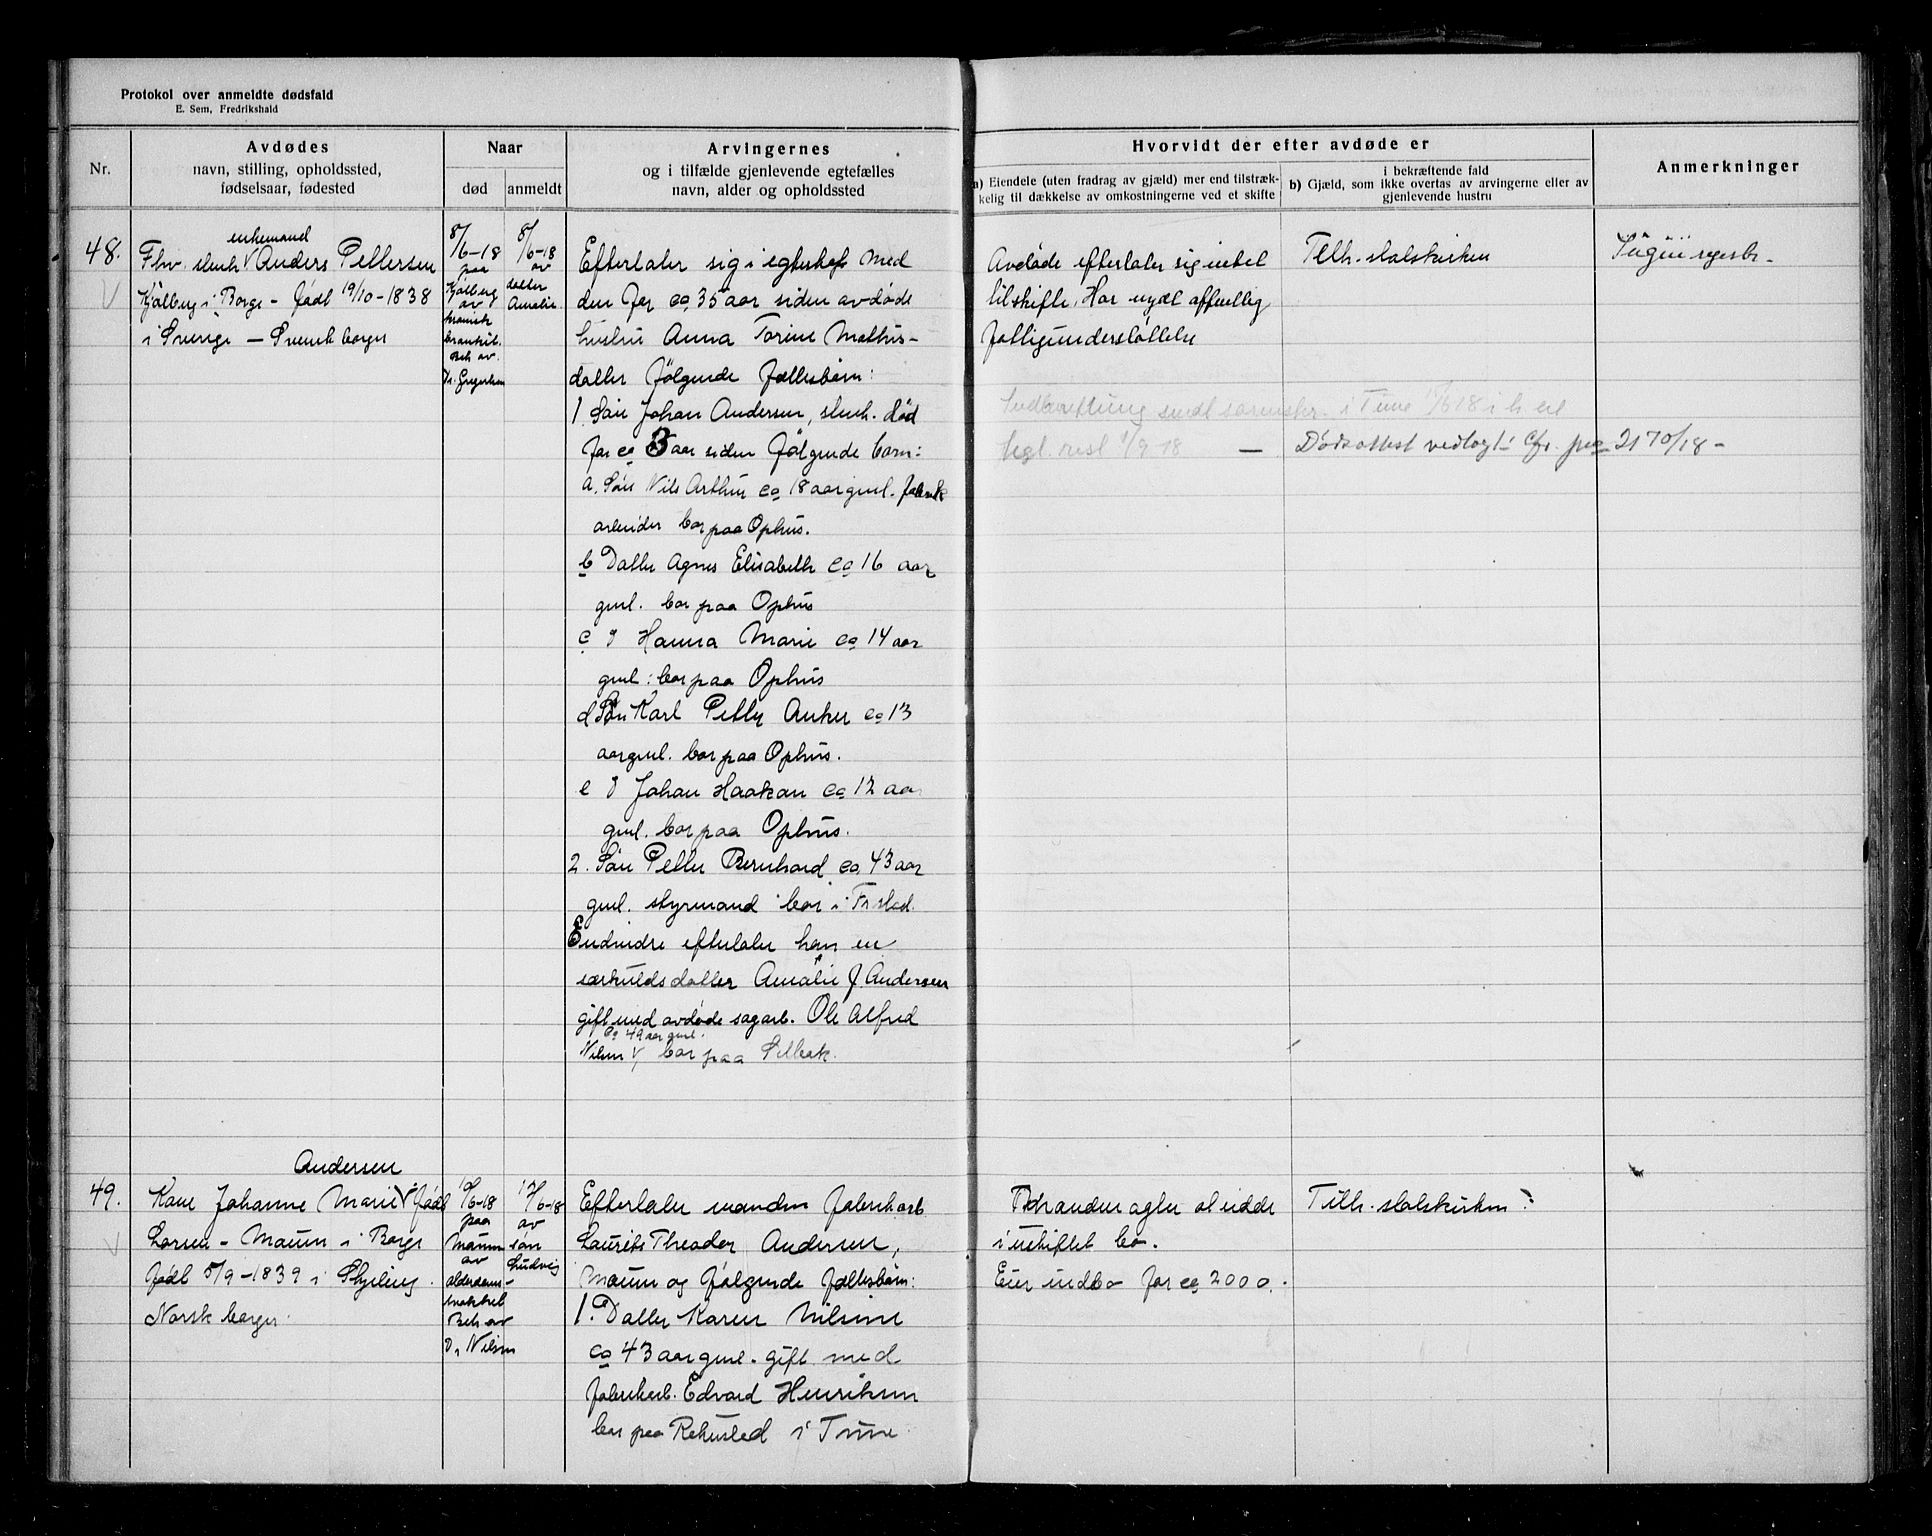 Protokol over anmeldte dødsfald
E. Sem, Fredrikshald
Nr.
Avdødes
navn, stilling, opholdssted,
fødselsaar, fødested
Naar
død
anmeldt
Arvingernes
og i tilfælde gjenlevende egtefælles
navn, alder og opholdssted
Hvorvidt der efter avdøde er
a) Eiendele (uten fradrag av gjæld) mer end tilstræk-
kelig til dækkelse av omkostningerne ved et skifte
i bekræftende fald
b) Gjæld, som ikke overtas av arvingerne eller av
gjenlevende hustru
Anmerkninger
48.
enkemand
Fhv. stenh. V Anders Pettersen
Kjølberg i Borge - født 19/10-1838
i Sverige - Svensk borger
8/6-18
paa
Kjølberg
av
kronisk
bronkit.
Beh av.
Dr. Gregersen
8/6-18
av
datter
Amalie
Efterlater sig i egteskap med
den for ca 35 aar siden avdøde
hustru Anna Torine Mathis-
datter følgende fællesbarn:
1. Søn Johan Andersen, stenh. død
for ca 3 aar siden følgende barn:
a. Søn Nils Arthur ca 18 aar gml. fabrik
arbeider bor paa Ophus.
b Datter Agnes Elisabeth ca 16 aar
gml. bor paa Ophus
c " Hanna Marie ca 14 aar
gml: bor paa Ophus
d Søn Karl Petter Anker ca 13
aar gml. bor paa Ophus.
e " Johan Haakon ca 12 aar
gml. bor paa Ophus.
2. Søn Petter Bernhard ca 43 aar
gml. styrmand bor i Fr.stad.
Endvidre efterlater han en
særkuldsdatter Amalie J. Andersen
gift med avdøde sagarb. Ole Alfred
ca 49 aar gml.
Nilsen V bor paa Selbak.
Avdøde efterlater sig intet
til skifte. Har nydt offentlig
fattigunderstøttelse
Tilh. statskirken
Ingen regestr.
i Tune
1/9-18 — Dødsattest vedlagt cfr. pca 2170/18 -
49.
Andersen
Kone Johanne Marie V født
Larsen - Maum i Borge
født 5/9-1839 i Skjeberg
Norsk borger
10/6-18
paa
Maum
av
alderdoms-
svakhet
Beh av
Dr Nilsen
12/6-18
av
søn
Ludvig
Efterlater manden fabrikarb.
Laurits Theodor Andersen,
Maum og følgende fællesbarn:
1. Datter Karen Nilsine
ca 43 aar gml. gift med
fabrikarb. Edvard Henriksen
bor paa Rekusted i Tune
Manden agter at sidde
i uskiftet bo.
Eier indbo for ca 2000.
Tilh. statskirken